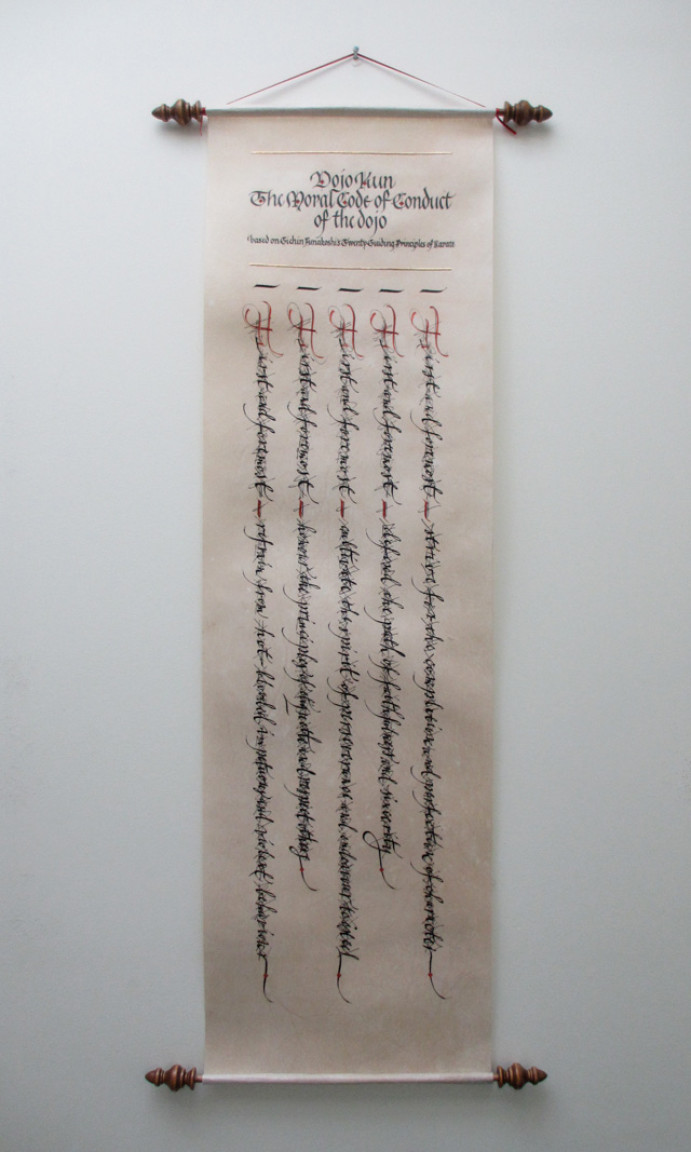 Dojo Kun
The Moral Code of Conduct
of the dojo
based on Gichin Funakoshi's Twenty Guiding Principles of Karate
一 First and foremost – strive for the completion and perfection of character
一 First and foremost – defend the path of faithfulness and sincerity
一 First and foremost – cultivate the spirit of perseverance and endeavour to excel
一 First and foremost – honour the principles of etiquette and respect
一 First and foremost – refrain from hot-blooded and violent behaviour